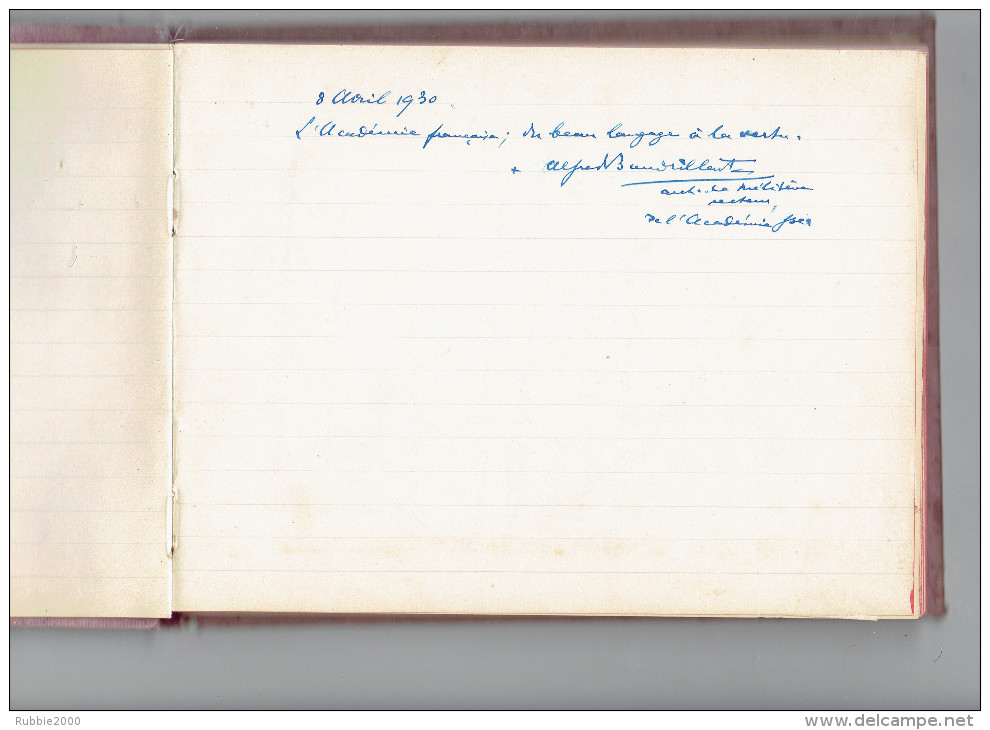 8 Avril 1930
L'Académie française; du beau langage à la vertu.
+ Alfred Baudrillart
arch. de Mélitène
recteur,
de l'Académie fse
Rubbie2000
www.delcampe.net